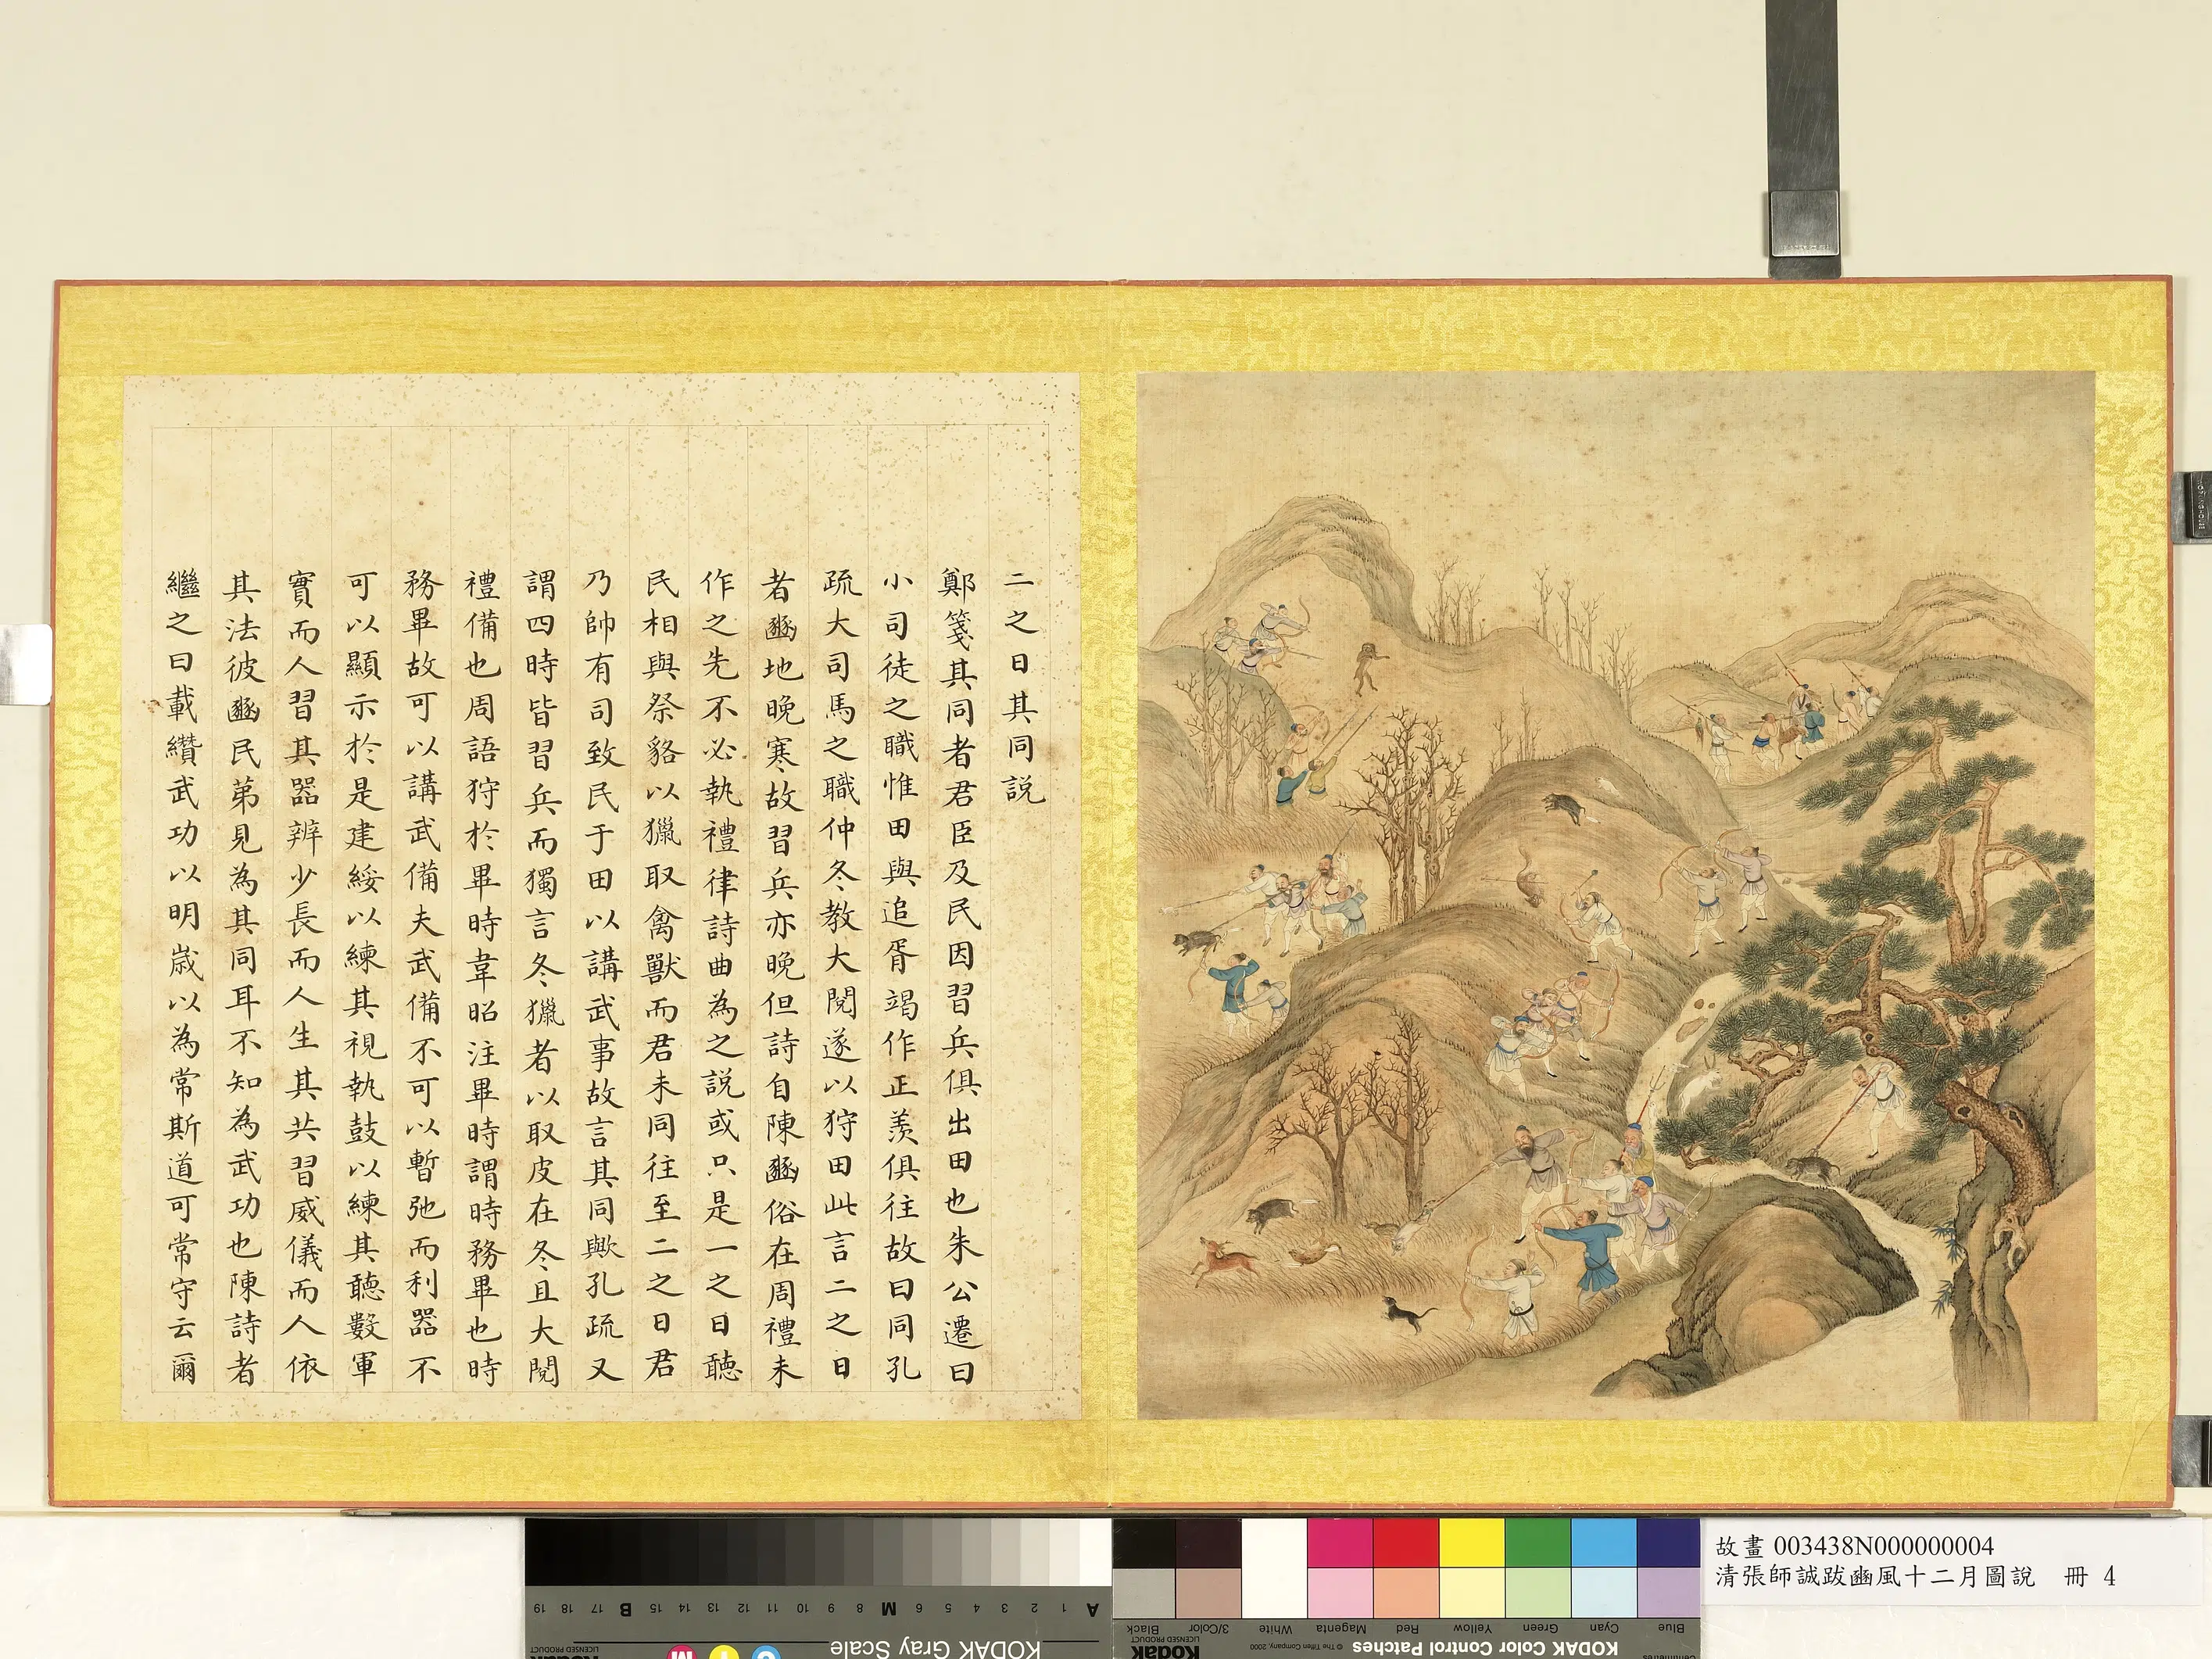 二之日其同説
鄭箋其同者君臣及民因習兵俱出田也朱公遷曰
小司徒之職惟田與追胥竭作正羨俱往故曰同孔
疏大司馬之職仲冬教大閱遂以狩田此言二之日
者豳地晚寒故習兵亦晚但詩自陳豳俗在周禮未
作之先不必執禮律詩曲為之説或只是一之日聽
民相與祭貉以獵取禽獸而君未同往至二之日君
乃帥有司致民于田以講武事故言其同歟孔疏又
謂四時皆習兵而獨言冬獵者以取皮在冬且大閱
禮備也周語狩於畢時韋昭注畢時謂時務畢也時
務畢故可以講武備夫武備不可以暫弛而利器不
可以顯示於是建綏以練其視執鼓以練其聽數軍
實而人習其器辨少長而人生其共習威儀而人依
其法彼豳民第見為其同耳不知為武功也陳詩者
繼之曰載纘武功以明嵗以為常斯道可常守云爾
故畫 003438N000000004
清張師誠跋豳風十二月圖說 冊 4
KODAK Gray Scale
A 1 2 3 4 5 6 M 8 9 10 11 12 13 14 15 B 17 18 19
Kodak
LICENSED PRODUCT
C Y M
KODAK Color Control Patches
© The Tiffen Company, 2000
Blue Cyan Green Yellow Red Magenta White 3/Color Black
Kodak
LICENSED PRODUCT
Centimetres